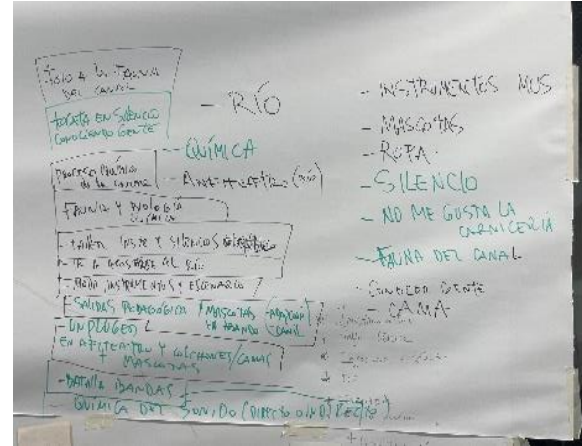 FOTO A LA FAUNA
DEL CANAL
TOCATA EN SILENCIO
CONOCIENDO GENTE
PROCESO QUÍMICO
de la carne
FAUNA Y BIOLOGÍA
QUÍMICA
- TALLER INSTR Y SILENCIOS
AL RÍO
- ROPA INSTRUMENTOS Y ESCENARIO
- SALIDAS PEDAGÓGICA / MASCOTAS - ADOPCIÓN
CANIL
- UNPLUGED
EN ANFITEATRO Y COLCHONES/CAMAS
+ MASCOTAS
- BATALLA BANDAS
- QUÍMICA DEL SONIDO (DIRECTO O INDIRECTO)
- RÍO
- QUÍMICA
- ANFITEATRO (RÍO)
- INSTRUMENTOS MUS
- MASCOTAS
- ROPA
- SILENCIO
- NO ME GUSTA LA
CARNICERÍA
- FAUNA DEL CANAL
- CONOCER GENTE
- CAMA